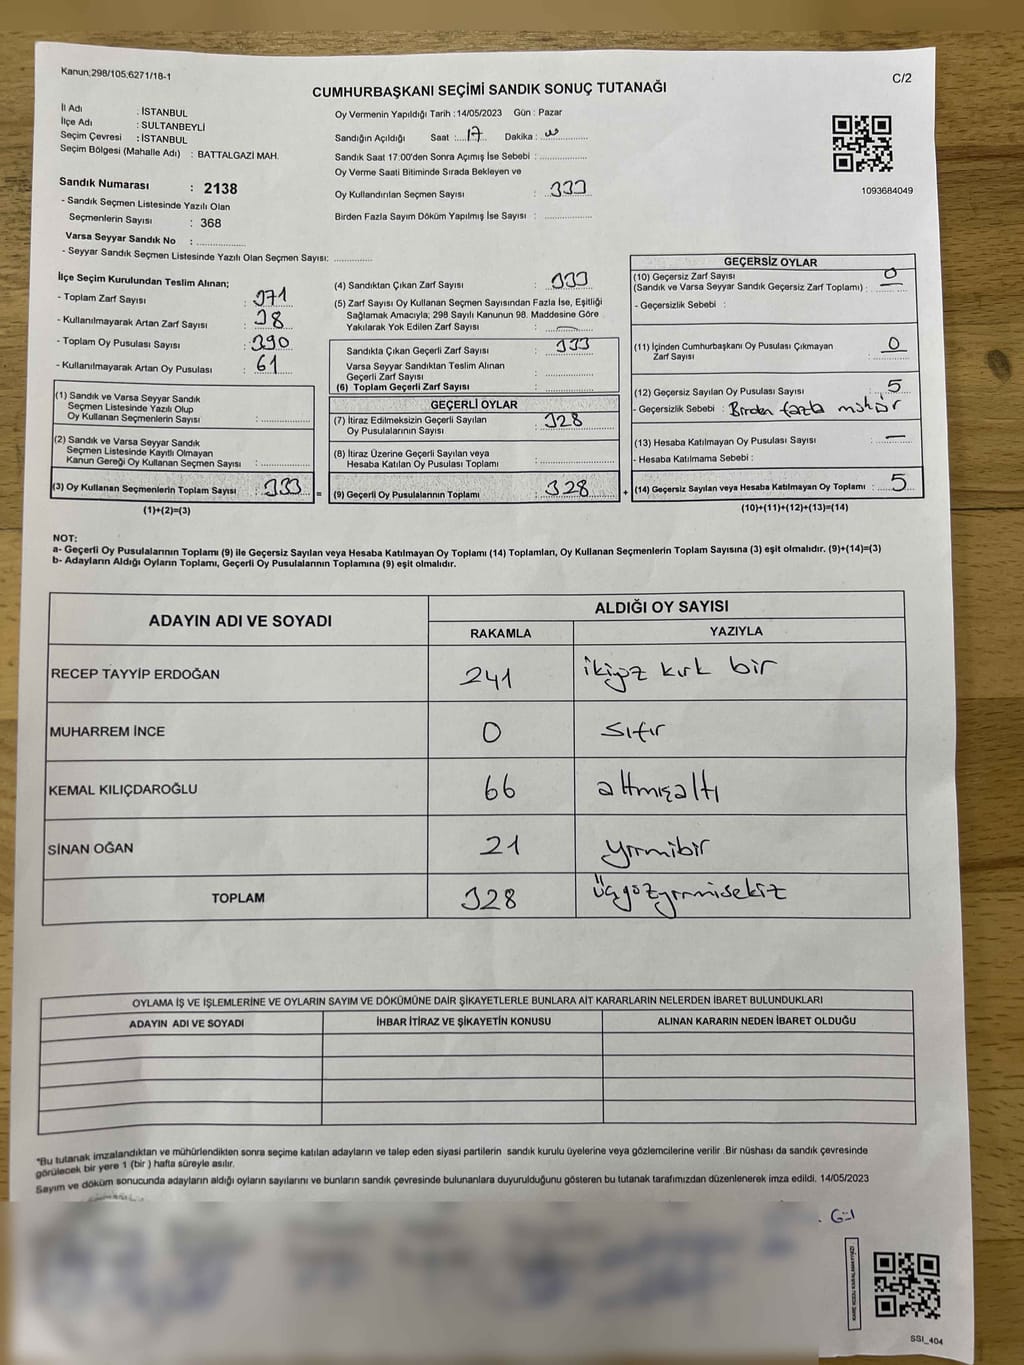 Kanun;298/105;6271/18-1
C/2
CUMHURBAŞKANI SEÇİMİ SANDIK SONUÇ TUTANAĞI
İl Adı : İSTANBUL
İlçe Adı : SULTANBEYLİ
Seçim Çevresi : İSTANBUL
Seçim Bölgesi (Mahalle Adı) : BATTALGAZİ MAH.
Sandık Numarası : 2138
- Sandık Seçmen Listesinde Yazılı Olan
Seçmenlerin Sayısı : 368
Varsa Seyyar Sandık No : ................
- Seyyar Sandık Seçmen Listesinde Yazılı Olan Seçmen Sayısı: .............
Oy Vermenin Yapıldığı Tarih : 14/05/2023 Gün : Pazar
Sandığın Açıldığı Saat :....17 Dakika :
Sandık Saat 17:00'den Sonra Açımış İse Sebebi : ................
Oy Verme Saati Bitiminde Sırada Bekleyen ve
Oy Kullandırılan Seçmen Sayısı : 333
Birden Fazla Sayım Döküm Yapılmış İse Sayısı : ................
1093684049
İlçe Seçim Kurulundan Teslim Alınan;
- Toplam Zarf Sayısı : 371
- Kullanılmayarak Artan Zarf Sayısı : 38
- Toplam Oy Pusulası Sayısı : 390
- Kullanılmayarak Artan Oy Pusulası : 61
(1) Sandık ve Varsa Seyyar Sandık
Seçmen Listesinde Yazılı Olup
Oy Kullanan Seçmenlerin Sayısı : ................
(2) Sandık ve Varsa Seyyar Sandık
Seçmen Listesinde Kayıtlı Olmayan
Kanun Gereği Oy Kullanan Seçmen Sayısı : ................
(3) Oy Kullanan Seçmenlerin Toplam Sayısı : 333 =
(1)+(2)=(3)
(4) Sandıktan Çıkan Zarf Sayısı : 333
(5) Zarf Sayısı Oy Kullanan Seçmen Sayısından Fazla İse, Eşitliği
Sağlamak Amacıyla; 298 Sayılı Kanunun 98. Maddesine Göre
Yakılarak Yok Edilen Zarf Sayısı : —
Sandıkta Çıkan Geçerli Zarf Sayısı : 333
Varsa Seyyar Sandıktan Teslim Alınan
Geçerli Zarf Sayısı : ................
(6) Toplam Geçerli Zarf Sayısı : ................
GEÇERLİ OYLAR
(7) İtiraz Edilmeksizin Geçerli Sayılan
Oy Pusulalarının Sayısı : 328
(8) İtiraz Üzerine Geçerli Sayılan veya
Hesaba Katılan Oy Pusulası Toplamı : ................
(9) Geçerli Oy Pusulalarının Toplamı : 328 +
GEÇERSİZ OYLAR
(10) Geçersiz Zarf Sayısı
(Sandık ve Varsa Seyyar Sandık Geçersiz Zarf Toplamı) : 0
- Geçersizlik Sebebi :
(11) İçinden Cumhurbaşkanı Oy Pusulası Çıkmayan
Zarf Sayısı : 0
(12) Geçersiz Sayılan Oy Pusulası Sayısı : 5
- Geçersizlik Sebebi : Birden fazla mühür
(13) Hesaba Katılmayan Oy Pusulası Sayısı : —
- Hesaba Katılmama Sebebi :
(14) Geçersiz Sayılan veya Hesaba Katılmayan Oy Toplamı : 5
(10)+(11)+(12)+(13)=(14)
NOT:
a- Geçerli Oy Pusulalarının Toplamı (9) ile Geçersiz Sayılan veya Hesaba Katılmayan Oy Toplamı (14) Toplamları, Oy Kullanan Seçmenlerin Toplam Sayısına (3) eşit olmalıdır. (9)+(14)=(3)
b- Adayların Aldığı Oyların Toplamı, Geçerli Oy Pusulalarının Toplamına (9) eşit olmalıdır.
ADAYIN ADI VE SOYADI
ALDIĞI OY SAYISI
RAKAMLA YAZIYLA
RECEP TAYYİP ERDOĞAN 241 ikiyüz kırk bir
MUHARREM İNCE 0 sıfır
KEMAL KILIÇDAROĞLU 66 altmışaltı
SİNAN OĞAN 21 yirmibir
TOPLAM 328 Üçyüzyirmisekiz
OYLAMA İŞ VE İŞLEMLERİNE VE OYLARIN SAYIM VE DÖKÜMÜNE DAİR ŞİKAYETLERLE BUNLARA AİT KARARLARIN NELERDEN İBARET BULUNDUKLARI
ADAYIN ADI VE SOYADI İHBAR İTİRAZ VE ŞİKAYETİN KONUSU ALINAN KARARIN NEDEN İBARET OLDUĞU
"Bu tutanak imzalandıktan ve mühürlendikten sonra seçime katılan adayların ve talep eden siyasi partilerin sandık kurulu üyelerine veya gözlemcilerine verilir .Bir nüshası da sandık çevresinde
görülecek bir yere 1 (bir ) hafta süreyle asılır.
Sayım ve döküm sonucunda adayların aldığı oyların sayılarını ve bunların sandık çevresinde bulunanlara duyurulduğunu gösteren bu tutanak tarafımızdan düzenlenerek imza edildi. 14/05/2023
SSI_404